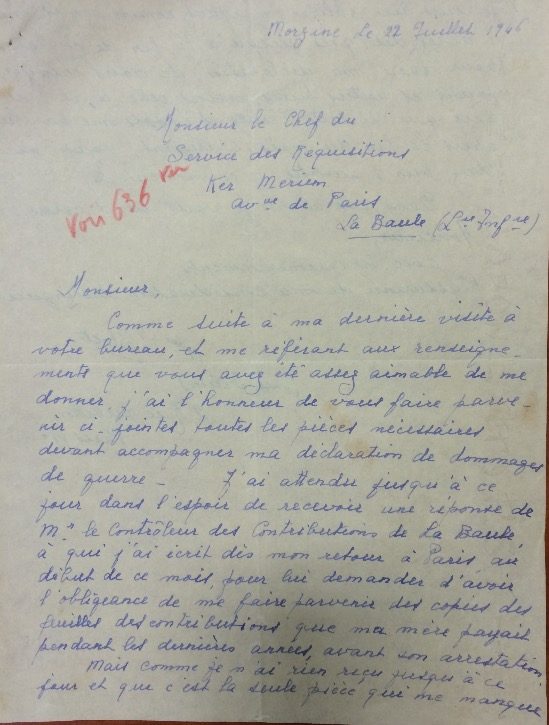 Morzine le 22 Juillet 1946
Monsieur le Chef du
Service des Réquisitions
Ker Meriem
avue de Paris
La Baule (Lre Infre)
Voir 636
Monsieur,
Comme suite à ma dernière visite à
votre bureau, et me référant aux renseigne-
ments que vous avez été assez aimable de me
donner j'ai l'honneur de vous faire parve-
nir ci-jointes toutes les pièces nécessaires
devant accompagner ma déclaration de dommages
de guerre - J'ai attendu jusqu'à ce
jour dans l'espoir de recevoir une réponse de
Mr le Contrôleur des Contributions de La Baule
à qui j'ai écrit dès mon retour à Paris, au
début de ce mois, pour lui demander d'avoir
l'obligeance de me faire parvenir des copies des
feuilles des contributions que ma mère payait
pendant les dernières années, avant son arrestation.
Mais comme je n'ai rien reçu jusqu'à ce
jour et que c'est la seule pièce qui me manque